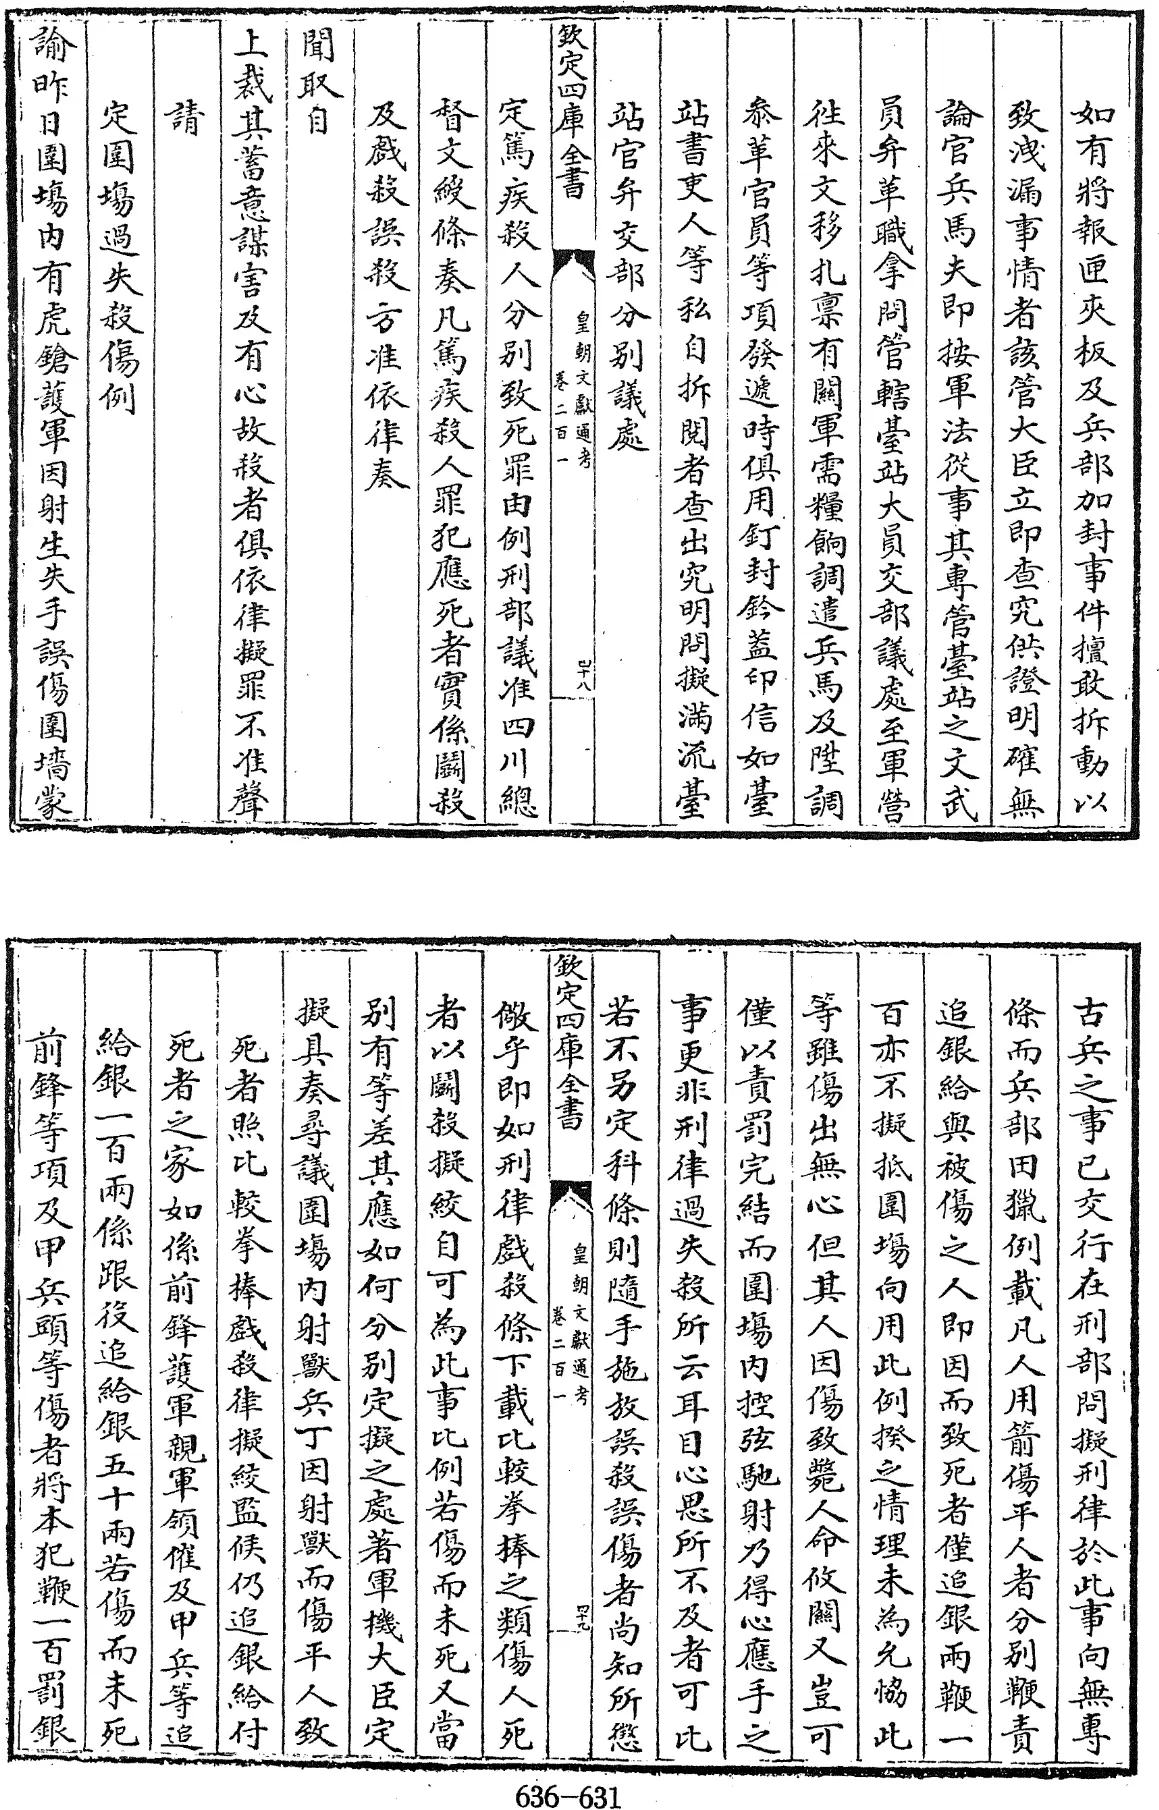 如有將報匣夾板及兵部加封事件擅敢拆動以
致洩漏事情者該管大臣立即查究供證明確無
論官兵馬夫即按軍法從事其專管臺站之文武
員弁革職拿問管轄臺站大員交部議處至軍營
徃來文移扎禀有關軍需糧餉調遣兵馬及陞調
叅革官員等項發遞時俱用釘封鈐蓋印信如臺
站書吏人等私自拆閱者查出究明問擬滿流臺
站官弁交部分别議處
欽定四庫全書
皇朝文獻通考
卷二百一
四十八
定篤疾殺人分别致死罪由例刑部議准四川總
督文綬條奏凡篤疾殺人罪犯應死者實係鬭殺
及戲殺誤殺方准依律奏
聞取自
上裁其蓄意謀害及有心故殺者俱依律擬罪不准聲
請
定圍塲過失殺傷例
諭昨日圍塲内有虎鎗護軍因射生失手誤傷圍墻蒙
古兵之事已交行在刑部問擬刑律於此事向無專
條而兵部田獵例載凡人用箭傷平人者分别鞭責
追銀給與被傷之人即因而致死者僅追銀兩鞭一
百亦不擬抵圍塲向用此例揆之情理未為允協此
等雖傷出無心但其人因傷致斃人命攸關又豈可
僅以責罰完結而圍塲内控弦馳射乃得心應手之
事更非刑律過失殺所云耳目心思所不及者可比
若不另定科條則隨手施放誤殺誤傷者尚知所懲
欽定四庫全書
皇朝文獻通考
卷二百一
四十九
儆乎即如刑律戲殺條下載比較拳捧之類傷人死
者以鬭殺擬絞自可為此事比例若傷而未死又當
别有等差其應如何分别定擬之處著軍機大臣定
擬具奏尋議圍塲内射獸兵丁因射獸而傷平人致
死者照比較拳捧戲殺律擬絞監候仍追銀給付
死者之家如係前鋒護軍親軍領催及甲兵等追
給銀一百兩係跟役追給銀五十兩若傷而未死
前鋒等項及甲兵頭等傷者將本犯鞭一百罰銀
636-631